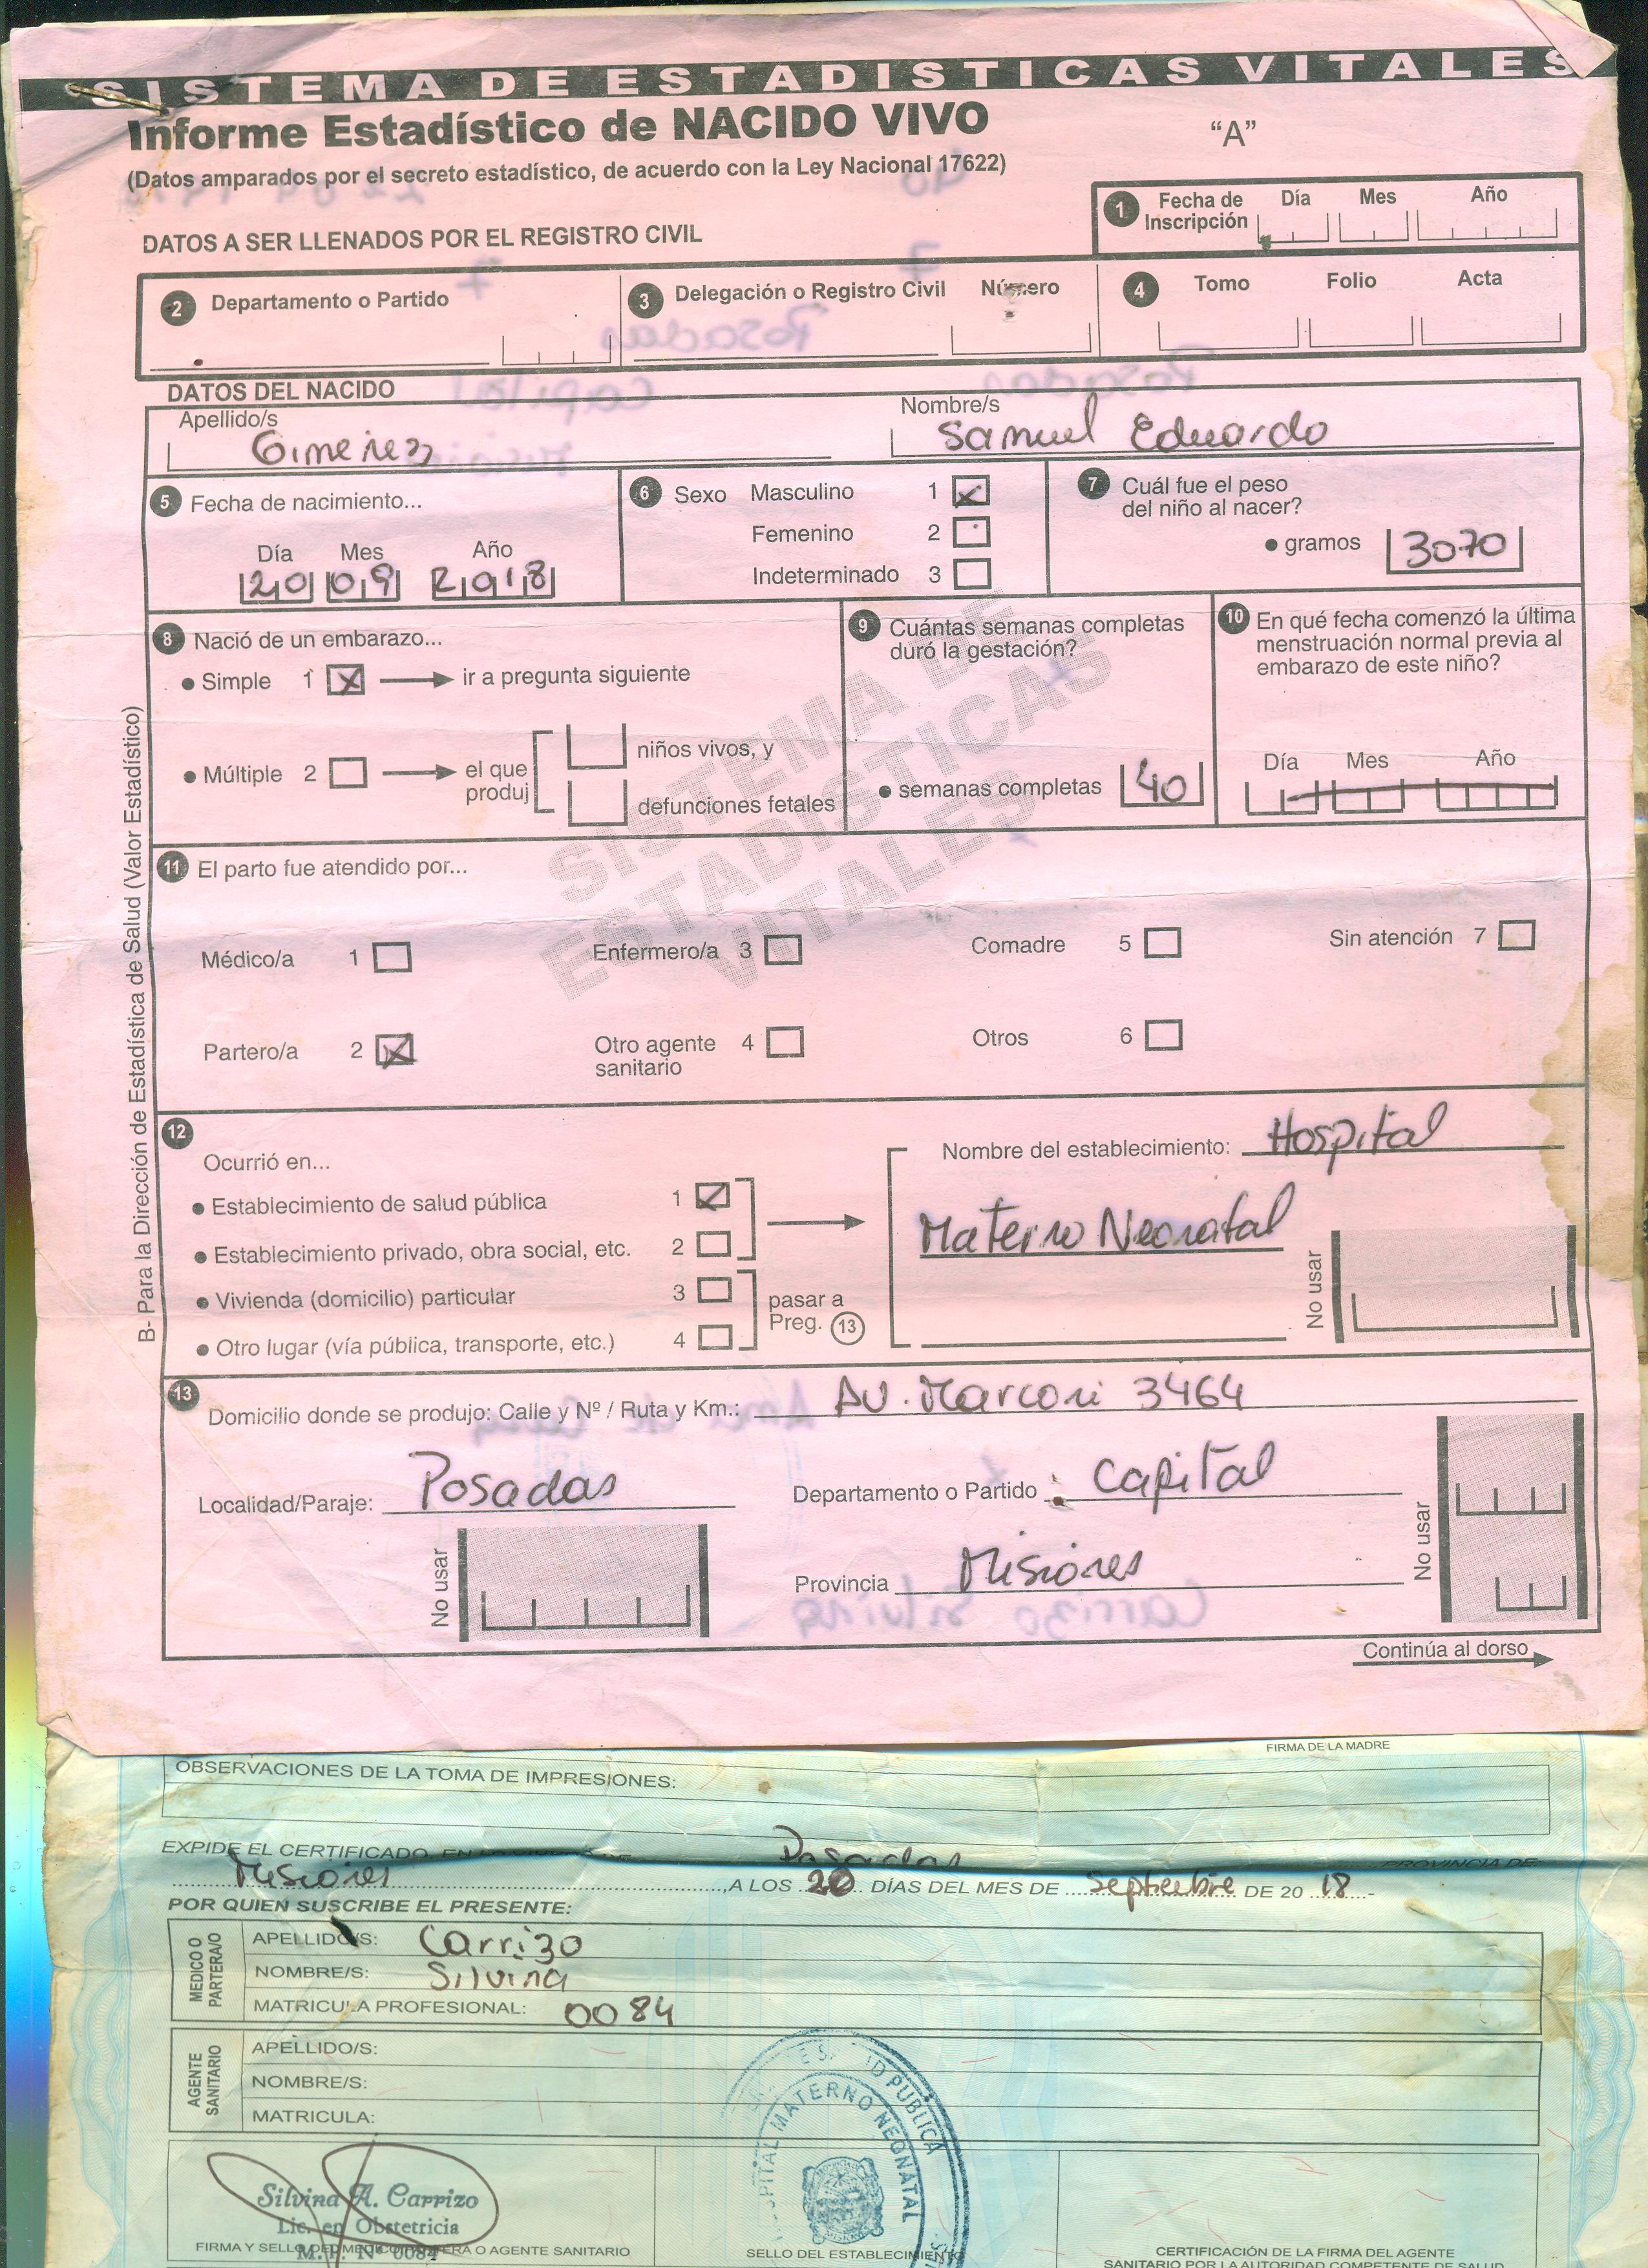 SISTEMA DE ESTADISTICAS VITALES
Informe Estadístico de NACIDO VIVO
"A"
(Datos amparados por el secreto estadístico, de acuerdo con la Ley Nacional 17622)
1 Fecha de Inscripción Día Mes Año
DATOS A SER LLENADOS POR EL REGISTRO CIVIL
2 Departamento o Partido 3 Delegación o Registro Civil Número 4 Tomo Folio Acta
DATOS DEL NACIDO
Apellido/s Nombre/s
Gimenez Samuel Eduardo
5 Fecha de nacimiento...
Día Mes Año
20 09 2018
6 Sexo Masculino 1 X
Femenino 2
Indeterminado 3
7 Cuál fue el peso
del niño al nacer?
• gramos 3070
8 Nació de un embarazo...
• Simple 1 X ir a pregunta siguiente
• Múltiple 2 el que produj
niños vivos, y
defunciones fetales
9 Cuántas semanas completas
duró la gestación?
• semanas completas 40
10 En qué fecha comenzó la última
menstruación normal previa al
embarazo de este niño?
Día Mes Año
SISTEMA DE
ESTADISTICAS
VITALES
B- Para la Dirección de Estadística de Salud (Valor Estadístico)
11 El parto fue atendido por...
Médico/a 1 Enfermero/a 3 Comadre 5 Sin atención 7
Partero/a 2 X Otro agente sanitario 4 Otros 6
12
Ocurrió en...
• Establecimiento de salud pública 1
• Establecimiento privado, obra social, etc. 2
• Vivienda (domicilio) particular 3
• Otro lugar (vía pública, transporte, etc.) 4
pasar a
Preg. 13
Nombre del establecimiento: Hospital
Materno Neonatal
No usar
13
Domicilio donde se produjo: Calle y Nº / Ruta y Km.: AV. Marconi 3464
Localidad/Paraje: Posadas Departamento o Partido Capital
No usar
Provincia Misiones
No usar
Continúa al dorso
FIRMA DE LA MADRE
OBSERVACIONES DE LA TOMA DE IMPRESIONES:
EXPIDE EL CERTIFICADO, EN LA CIUDAD DE Posadas PROVINCIA DE
Misiones, A LOS 20 DÍAS DEL MES DE Septiembre DE 20 18.-
POR QUIEN SUSCRIBE EL PRESENTE:
MEDICO O PARTERA/O
APELLIDO/S: Carrizo
NOMBRE/S: Silvina
MATRICULA PROFESIONAL: 0084
AGENTE SANITARIO
APELLIDO/S:
NOMBRE/S:
MATRICULA:
PUBLICA
MATERNO NEONATAL
Silvina A. Carrizo
Lic. en Obstetricia
M.P. Nº 0084
FIRMA Y SELLO DEL MEDICO PARTERA O AGENTE SANITARIO
SELLO DEL ESTABLECIMIENTO
CERTIFICACIÓN DE LA FIRMA DEL AGENTE
SANITARIO POR LA AUTORIDAD COMPETENTE DE SALUD